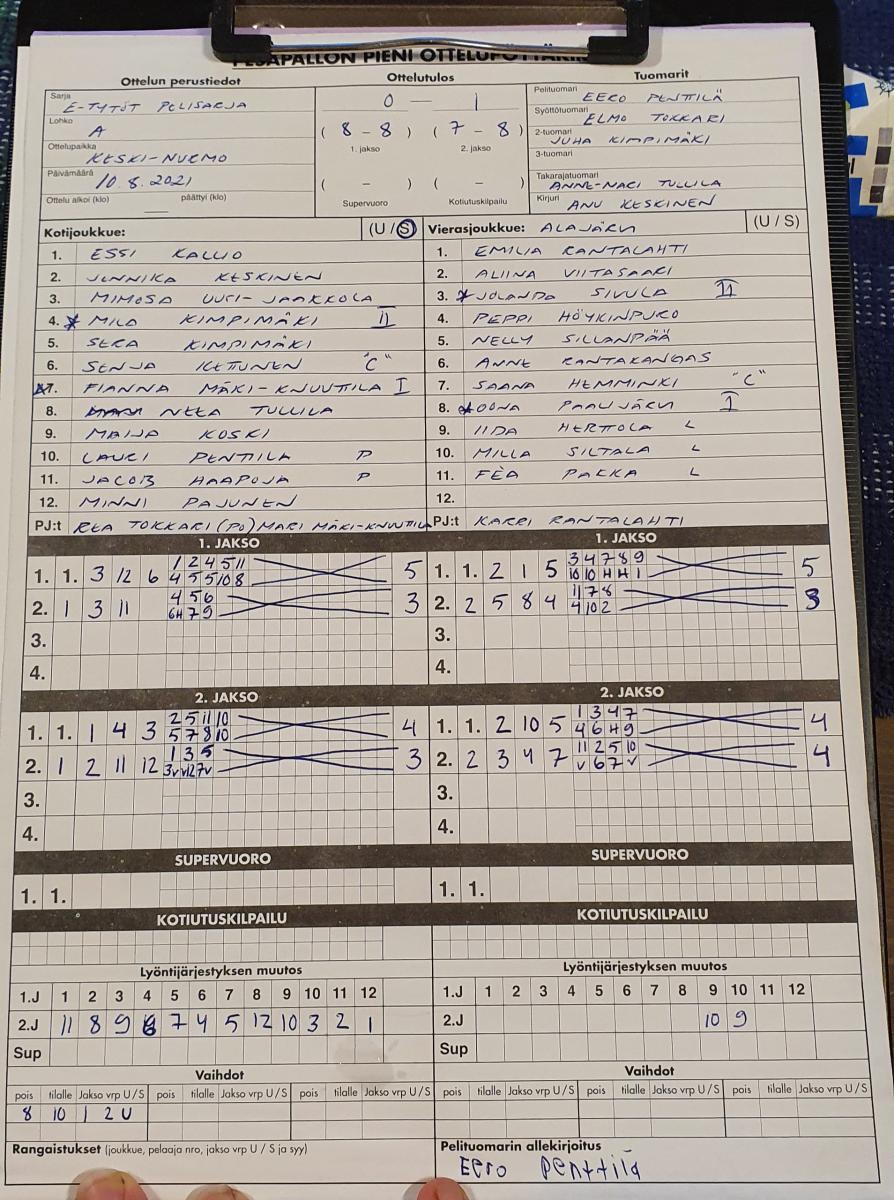 PESÄPALLON PIENI OTTELUPÖYTÄKIRJA
Ottelun perustiedot
Sarja
E-TYTÖT POLISARJA
Lohko
A
Ottelupaikka
KESKI-NURMO
Päivämäärä
10.8.2021
Ottelu alkoi (klo) päättyi (klo)
Ottelutulos
0 — 1
( 8 - 8 ) ( 7 - 8 )
1. jakso 2. jakso
( - ) ( - )
Supervuoro Kotiutuskilpailu
Tuomarit
Pelituomari
EERO PENTTILÄ
Syöttötuomari
ELMO TOKKARI
2-tuomari
JUHA KIMPIMÄKI
3-tuomari
Takarajatuomari
ANNE-MARI TULLILA
Kirjuri
ANU KESKINEN
Kotijoukkue: (U / S)
1. ESSI KALLIO
2. JENNIKA KESKINEN
3. MIMOSA UUSI-JAAKKOLA
4. MILO KIMPIMÄKI II
5. SERA KIMPIMÄKI
6. SENJA KETTUNEN "C"
7. FIANNA MÄKI-KNUUTILA I
8. NEEA TULLILA
9. MAIJA KOSKI
10. LAURI PENTTILÄ P
11. JACOB HAAPOJA P
12. MINNI PAJUNEN
PJ:t REA TOKKARI (PO) MARI MÄKI-KNUUTILA
Vierasjoukkue: ALAJÄRVI (U / S)
1. EMILIA RANTALAHTI
2. ALIINA VIITASAARI
3. JOLANDA SIVULA II
4. PEPPI HÖYKINPURO
5. NELLY SILLANPÄÄ
6. ANNE RANTAKANGAS
7. SAANA HEMMINKI "C"
8. OONA PAALIJÄRVI I
9. IIDA HERTTOLA L
10. MILLA SILTALA L
11. FÈA PAKKA L
12.
PJ:t KARRI RANTALAHTI
1. JAKSO
1. 1. 3 12 6 1 2 4 5 11 5
4 5 5 10 8
2. 1 3 11 4 5 6 3
6H 7 9
3.
4.
1. JAKSO
1. 1. 2 1 5 3 4 7 8 9 5
10 10 H H 1
2. 2 5 8 4 11 7 8 3
4 10 2
3.
4.
2. JAKSO
1. 1. 1 4 3 2 5 11 10 4
5 7 8 10
2. 1 2 11 12 1 3 5 3
3v v12 7v
3.
4.
2. JAKSO
1. 1. 2 10 5 1 3 4 7 4
4 6 H 9
2. 2 3 4 7 11 2 5 10 4
v 6 7 v
3.
4.
SUPERVUORO
1. 1.
SUPERVUORO
1. 1.
KOTIUTUSKILPAILU
KOTIUTUSKILPAILU
Lyöntijärjestyksen muutos
1.J 1 2 3 4 5 6 7 8 9 10 11 12
2.J 11 8 9 6 7 4 5 12 10 3 2 1
Sup
Lyöntijärjestyksen muutos
1.J 1 2 3 4 5 6 7 8 9 10 11 12
2.J 10 9
Sup
Vaihdot
pois tilalle Jakso vrp U / S pois tilalle Jakso vrp U / S pois tilalle Jakso vrp U / S
8 10 1 2 U
Vaihdot
pois tilalle Jakso vrp U / S pois tilalle Jakso vrp U / S pois tilalle Jakso vrp U / S
Rangaistukset (joukkue, pelaaja nro, jakso vrp U / S ja syy)
Pelituomarin allekirjoitus
Eero Penttilä